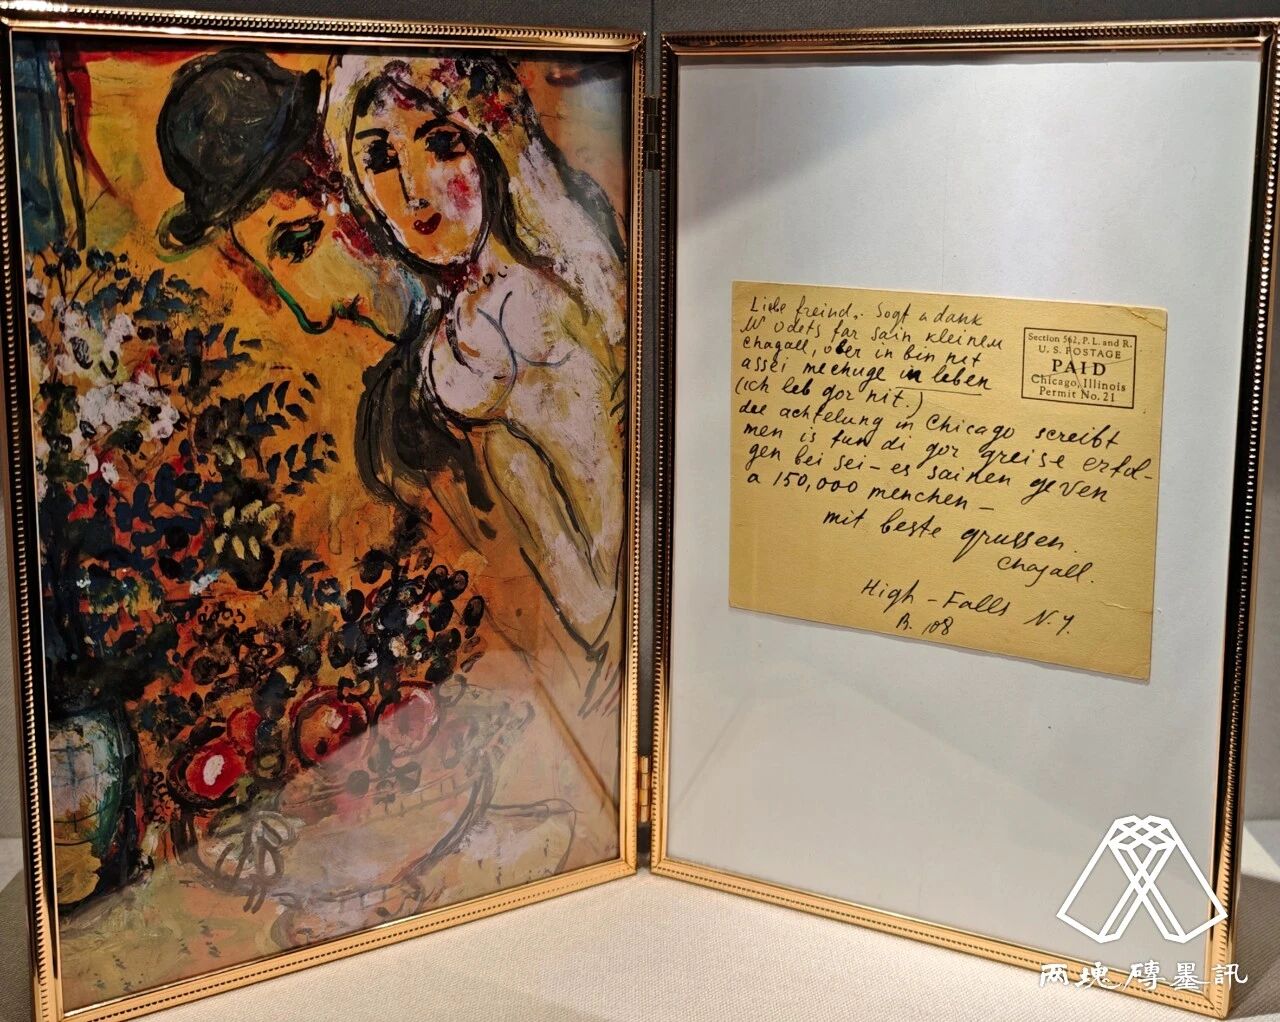 Liebe freind. Sogt a dank
Mr Odets far sain kleinem
Chagall, ober in bin nit
assei mechuge in leben
(ich leb gor nit.)
die achtelung in Chicago screibt
men is fun di gor greise erfol-
gen bei sei – es sainen geven
a 150,000 menchen –
mit beste grussen.
Chagall.
High – Falls N.Y.
B. 108
Section 562, P. L. and R.
U. S. POSTAGE
PAID
Chicago, Illinois
Permit No. 21
两塊磚墨訊